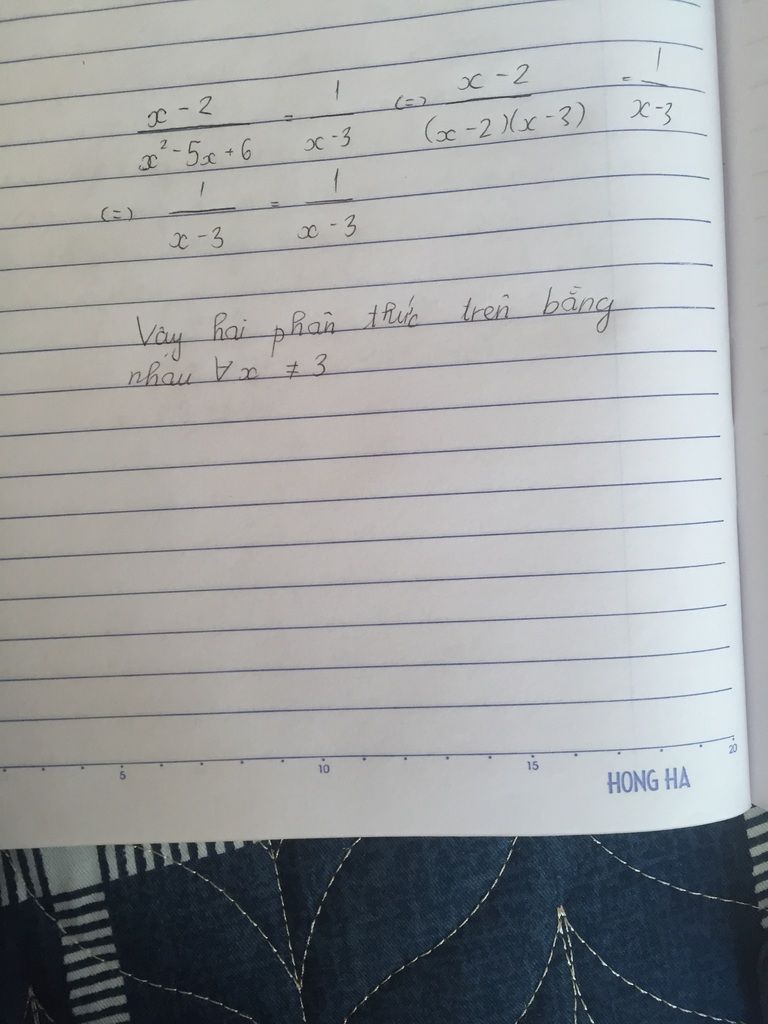 x - 2 / x² - 5x + 6 = 1 / x - 3 (=) x - 2 / (x - 2)(x - 3) = 1 / x - 3
(=) 1 / x - 3 = 1 / x - 3
Vậy hai phân thức trên bằng
nhau ∀x ≠ 3
5 10 15 20
HONG HA